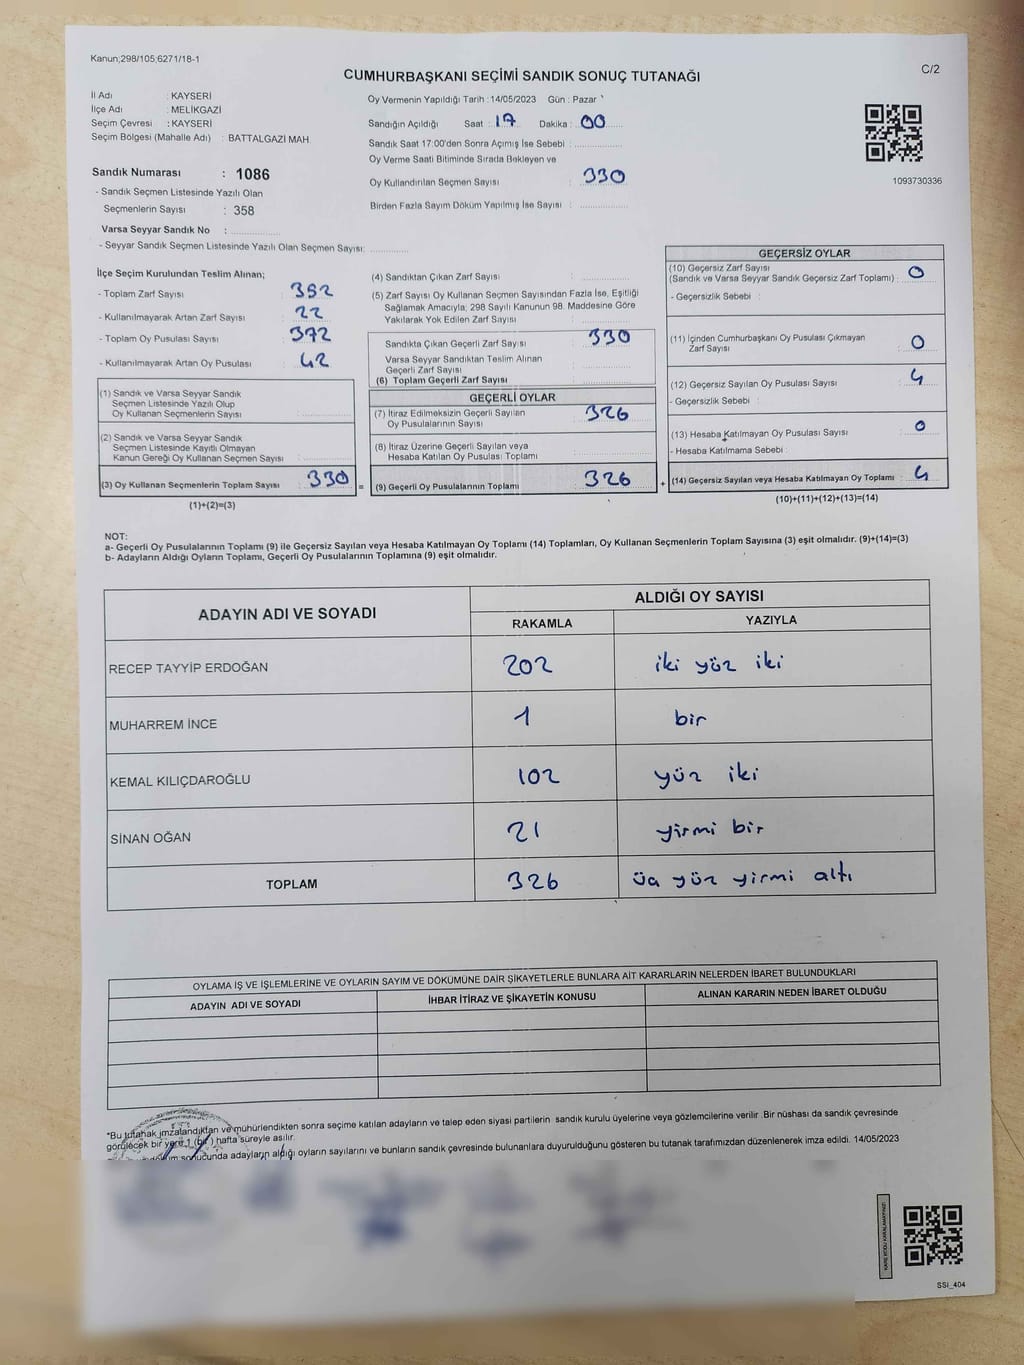 Kanun;298/105,6271/18-1
C/2
CUMHURBAŞKANI SEÇİMİ SANDIK SONUÇ TUTANAĞI
İl Adı : KAYSERİ
İlçe Adı : MELİKGAZİ
Seçim Çevresi : KAYSERİ
Seçim Bölgesi (Mahalle Adı) : BATTALGAZİ MAH.
Oy Vermenin Yapıldığı Tarih : 14/05/2023 Gün : Pazar
Sandığın Açıldığı Saat : 17 Dakika : 00
Sandık Saat 17:00'den Sonra Açımış İse Sebebi :
Oy Verme Saati Bitiminde Sırada Bekleyen ve
Oy Kullandırılan Seçmen Sayısı : 330
Birden Fazla Sayım Döküm Yapılmış İse Sayısı :
1093730336
Sandık Numarası : 1086
- Sandık Seçmen Listesinde Yazılı Olan
Seçmenlerin Sayısı : 358
Varsa Seyyar Sandık No :
- Seyyar Sandık Seçmen Listesinde Yazılı Olan Seçmen Sayısı:
İlçe Seçim Kurulundan Teslim Alınan;
- Toplam Zarf Sayısı : 352
- Kullanılmayarak Artan Zarf Sayısı : 22
- Toplam Oy Pusulası Sayısı : 372
- Kullanılmayarak Artan Oy Pusulası : 42
(1) Sandık ve Varsa Seyyar Sandık
Seçmen Listesinde Yazılı Olup
Oy Kullanan Seçmenlerin Sayısı :
(2) Sandık ve Varsa Seyyar Sandık
Seçmen Listesinde Kayıtlı Olmayan
Kanun Gereği Oy Kullanan Seçmen Sayısı :
(3) Oy Kullanan Seçmenlerin Toplam Sayısı : 330 =
(1)+(2)=(3)
(4) Sandıktan Çıkan Zarf Sayısı :
(5) Zarf Sayısı Oy Kullanan Seçmen Sayısından Fazla İse, Eşitliği
Sağlamak Amacıyla; 298 Sayılı Kanunun 98. Maddesine Göre
Yakılarak Yok Edilen Zarf Sayısı :
Sandıkta Çıkan Geçerli Zarf Sayısı : 330
Varsa Seyyar Sandıktan Teslim Alınan
Geçerli Zarf Sayısı :
(6) Toplam Geçerli Zarf Sayısı :
GEÇERLİ OYLAR
(7) İtiraz Edilmeksizin Geçerli Sayılan
Oy Pusulalarının Sayısı : 326
(8) İtiraz Üzerine Geçerli Sayılan veya
Hesaba Katılan Oy Pusulası Toplamı :
(9) Geçerli Oy Pusulalarının Toplamı : 326 +
GEÇERSİZ OYLAR
(10) Geçersiz Zarf Sayısı
(Sandık ve Varsa Seyyar Sandık Geçersiz Zarf Toplamı) : 0
- Geçersizlik Sebebi :
(11) İçinden Cumhurbaşkanı Oy Pusulası Çıkmayan
Zarf Sayısı : 0
(12) Geçersiz Sayılan Oy Pusulası Sayısı : 4
- Geçersizlik Sebebi :
(13) Hesaba Katılmayan Oy Pusulası Sayısı : 0
- Hesaba Katılmama Sebebi :
(14) Geçersiz Sayılan veya Hesaba Katılmayan Oy Toplamı : 4
(10)+(11)+(12)+(13)=(14)
NOT:
a- Geçerli Oy Pusulalarının Toplamı (9) ile Geçersiz Sayılan veya Hesaba Katılmayan Oy Toplamı (14) Toplamları, Oy Kullanan Seçmenlerin Toplam Sayısına (3) eşit olmalıdır. (9)+(14)=(3)
b- Adayların Aldığı Oyların Toplamı, Geçerli Oy Pusulalarının Toplamına (9) eşit olmalıdır.
ADAYIN ADI VE SOYADI ALDIĞI OY SAYISI
RAKAMLA YAZIYLA
RECEP TAYYİP ERDOĞAN 202 iki yüz iki
MUHARREM İNCE 1 bir
KEMAL KILIÇDAROĞLU 102 yüz iki
SİNAN OĞAN 21 yirmi bir
TOPLAM 326 üç yüz yirmi altı
OYLAMA İŞ VE İŞLEMLERİNE VE OYLARIN SAYIM VE DÖKÜMÜNE DAİR ŞİKAYETLERLE BUNLARA AİT KARARLARIN NELERDEN İBARET BULUNDUKLARI
ADAYIN ADI VE SOYADI İHBAR İTİRAZ VE ŞİKAYETİN KONUSU ALINAN KARARIN NEDEN İBARET OLDUĞU
*Bu tutanak imzalandıktan ve mühürlendikten sonra seçime katılan adayların ve talep eden siyasi partilerin sandık kurulu üyelerine veya gözlemcilerine verilir .Bir nüshası da sandık çevresinde
görülecek bir yere 1 (bir) hafta süreyle asılır.
sonucunda adayların aldığı oyların sayılarını ve bunların sandık çevresinde bulunanlara duyurulduğunu gösteren bu tutanak tarafımızdan düzenlenerek imza edildi. 14/05/2023
KARE KODU KARALAMAYINIZ!
SSI_404